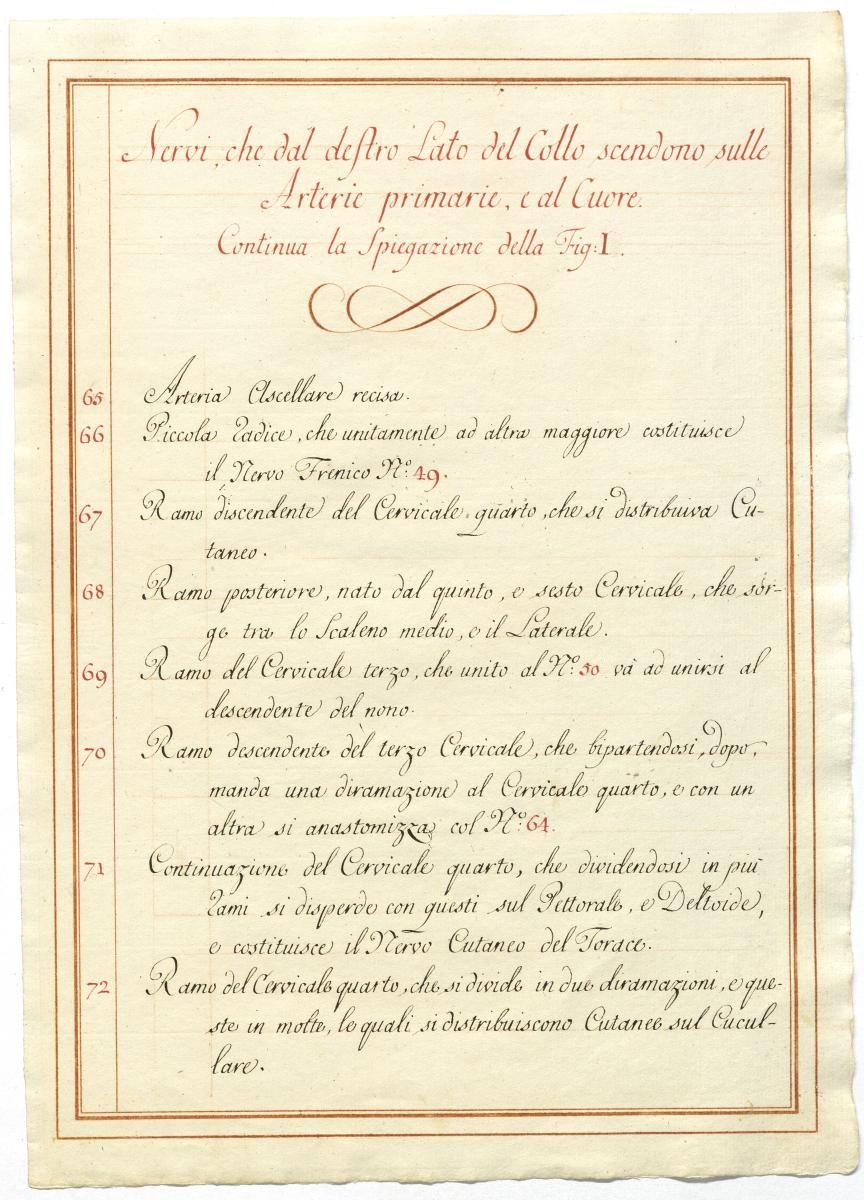 Nervi, che dal destro Lato del Collo scendono sulle
Arterie primarie, e al Cuore.
Continua la Spiegazione della Fig: I.
65 Arteria Ascellare recisa.
66 Piccola radice, che unitamente ad altra maggiore costituisce
il Nervo Frenico Nº. 49.
67 Ramo discendente del Cervicale quarto, che si distribuiva Cu-
taneo.
68 Ramo posteriore, nato dal quinto, e sesto Cervicale, che sor-
ge tra lo Scaleno medio, e il Laterale.
69 Ramo del Cervicale terzo, che unito al Nº. 50 và ad unirsi al
descendente del nono.
70 Ramo descendente del terzo Cervicale, che bipartendosi, dopo,
manda una diramazione al Cervicale quarto, e con un
altra si anastomizza col Nº. 64.
71 Continuazione del Cervicale quarto, che dividendosi in più
rami si disperde con questi sul Pettorale, e Deltoide,
e costituisce il Nervo Cutaneo del Torace.
72 Ramo del Cervicale quarto, che si divide in due diramazioni, e que-
ste in molte, le quali si distribuiscono Cutanee sul Cucul-
lare.